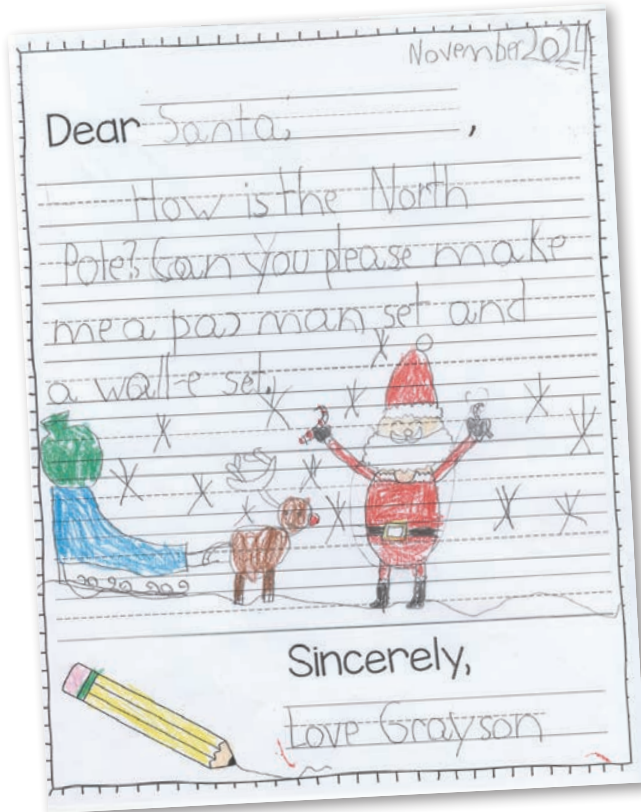 November 2024
Dear Santa, ,
How is the North
Pole? Can You please make
me a pac man set and
a wall-e set.
Sincerely,
Love Grayson